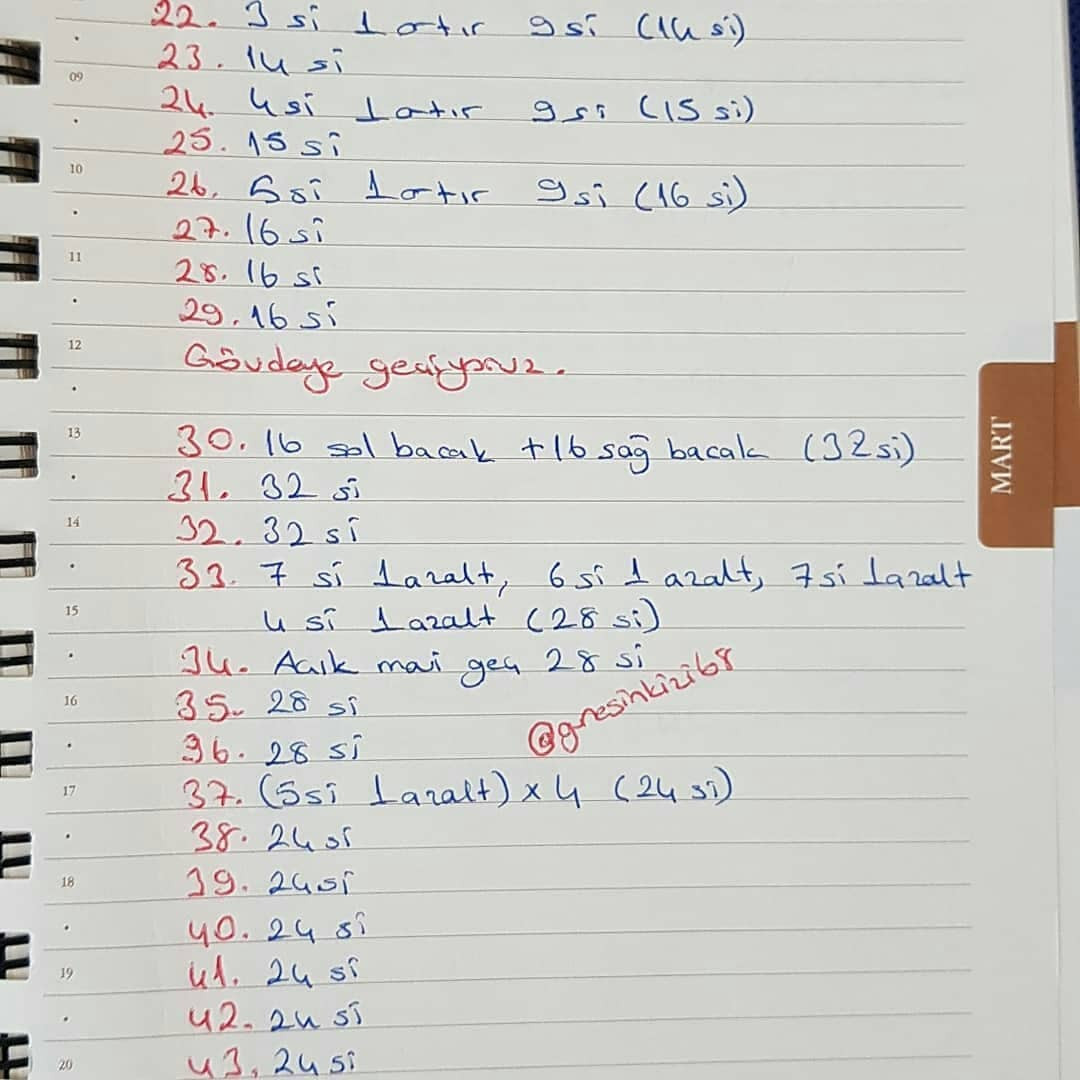 22. 3 si 1 artır 9 si (14 si)
09
23. 14 si
24. 4 si 1 artır 9 si (15 si)
25. 15 si
10
26. 5 si 1 artır 9 si (16 si)
27. 16 si
11
28. 16 si
29. 16 si
12
Gövdeye geçiyoruz.
13
30. 16 sol bacak +16 sağ bacak (32 si)
31. 32 si
14
32. 32 si
33. 7 si 1 azalt, 6 si 1 azalt, 7 si 1 azalt
15
4 si 1 azalt (28 si)
34. Açık mavi geç 28 si
16
35. 28 si
@gnesinkizi68
36. 28 si
17
37. (5 si 1 azalt) x 4 (24 si)
38. 24 si
18
39. 24 si
40. 24 si
19
41. 24 si
42. 24 si
20
43. 24 si
MART